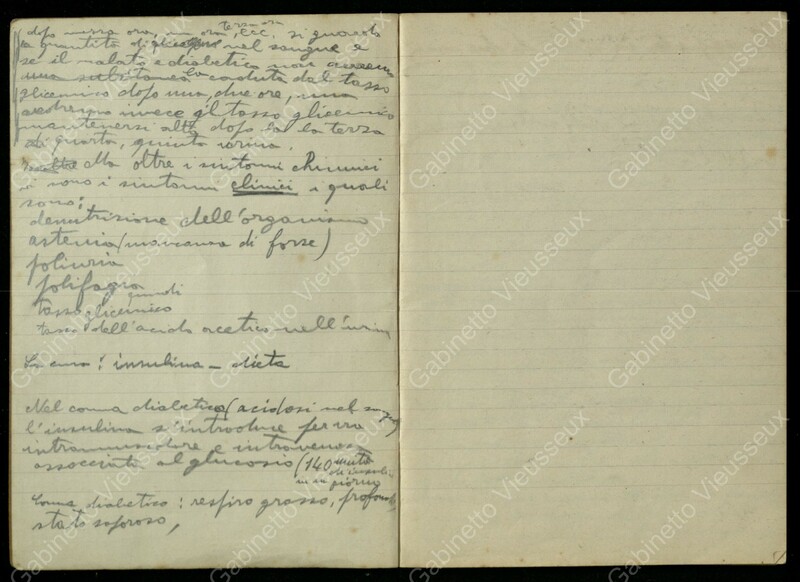 terza ora
dopo mezza ora, un ora, ecc. si guarda
la quantità di glicogeno nel sangue e
se il malato è diabetico non avremo
una subitanea caduta del tasso
glicemico dopo una, due ore, ma
vedremo invece il tasso glicemico
mantenersi alto dopo la terza
quarta, quinta
Ma oltre i sintomi chimici
vi sono i sintomi clinici i quali
sono:
denutrizione dell'organismo
astenia (mancanza di forze)
poliuria
polifagia
quindi
tasso glicemico
tasso dell'acido acetico nell'urina
La cura: insulina - dieta
Nel coma diabetico (acidosi nel sangue)
l'insulina s'introduce per via
intramuscolare e intravenosa
associata al glucosio (140 unità
di insulina
in un giorno
Coma diabetico: respiro grosso, profondo
stato soporoso,
Gabinetto Vieusseux